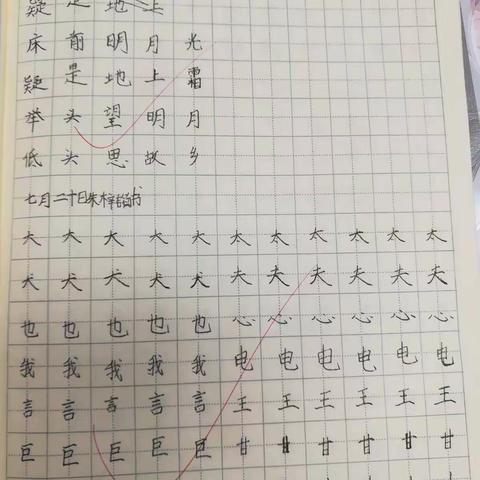 疑是地上
床前明月光
疑是地上霜
举头望明月
低头思故乡
七月二十日朱梓书
大大大大大太太太太太太
犬犬犬犬犬夫夫夫夫夫夫
也也也也也心心心心心心
我我我我我电电电电电电
言言言言言王王王王王王
巨巨巨巨巨甘甘甘甘甘甘